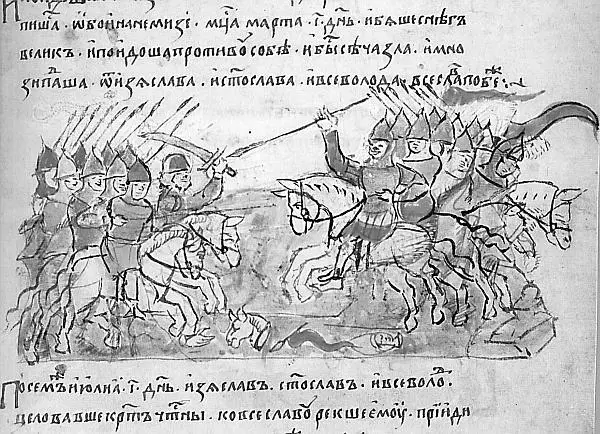 пиша. ѿ бои на немизі. мца марта. г. днь. и бяше снегъ
великъ. и поидоша противоу собѣ. и бы сеча зла. и мно
зи паша. ѿ изяслава. и стослава. и всеволода. всеслав побѣ
По семъ июлиа. г. днь. изяславъ. стославъ. и всеволо.
целовавше крть чтны. ко всеславоу рекше емоу. приди